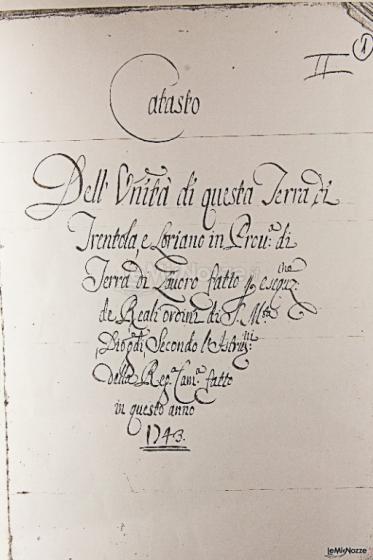 1
II
Catasto
Dell' Unità di questa Terra di
Trentola, e Loriano in Prou.a di
Terra di Lauoro fatto p eseguz.ne
de Reali ordini di S. M.tà
Secondo l'Istruz.ni
della Reg.a Cam.a fatto
in questo anno
1743.
leMieNozze